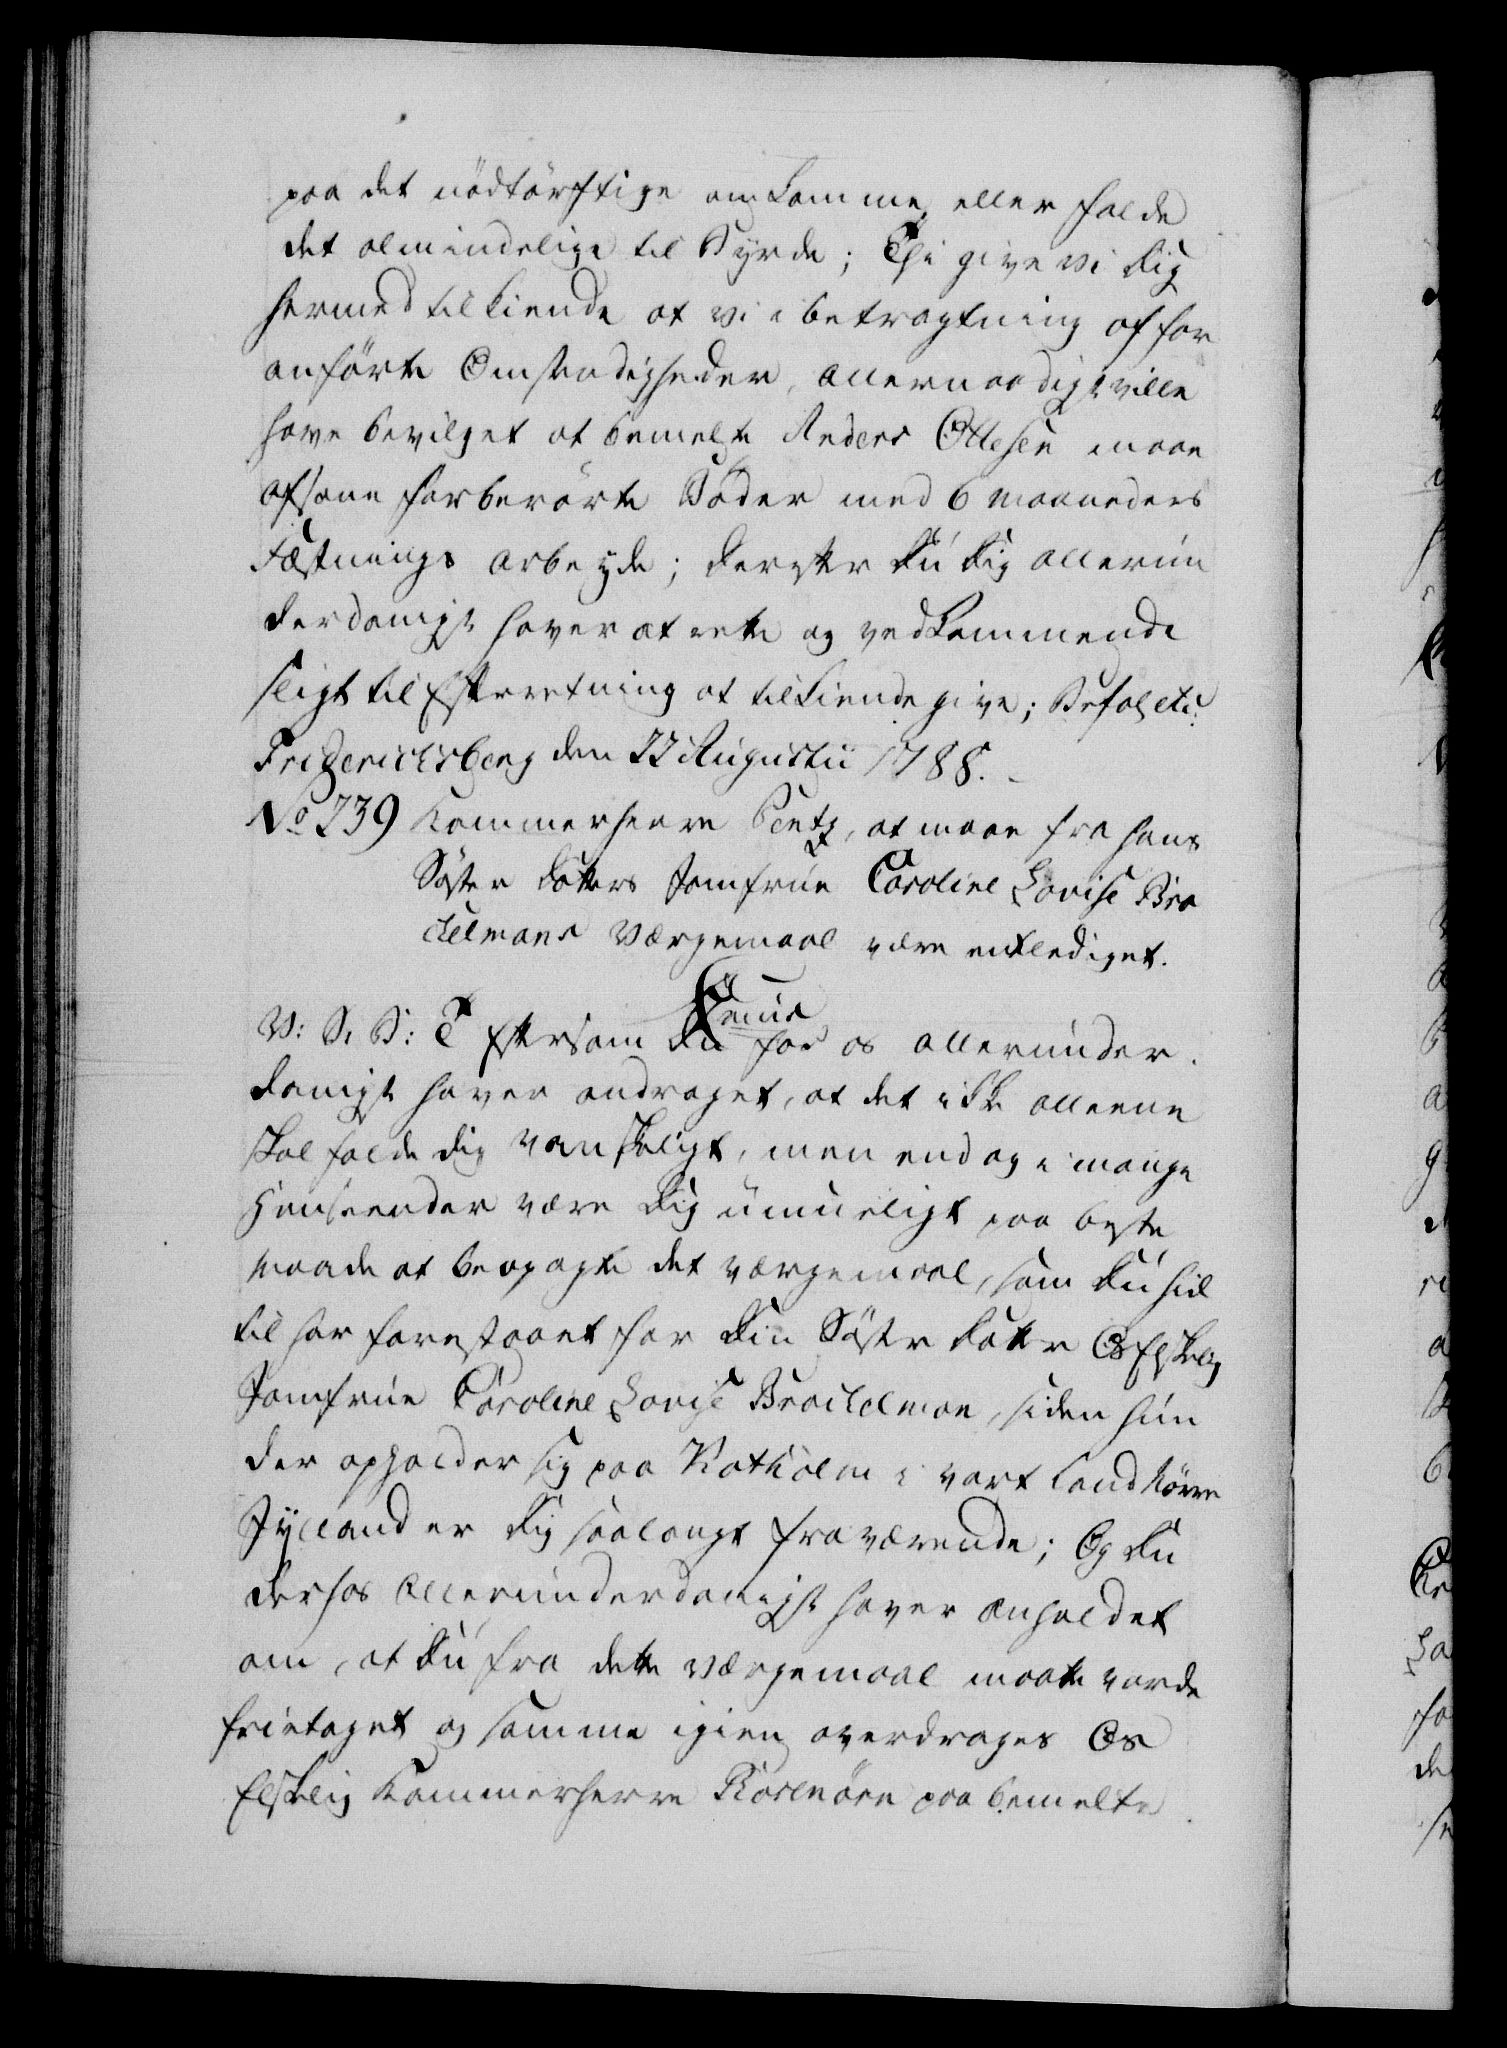 paa det nödtörftige omkomme, eller falde
det almindelige til Byrde; Thi give vi Dig
hermed tilkiende at vi i betragtning af for
anförte Omstændigheder, allernaadigst ville
have bevilget at bemelte Anders Ottesen maae
afsone forberörte Böder med 6 maaneders
Fæstnings arbeyde; derefter Du Dig allerun
derdanigst haver at rette og vedkommende
sligt til Efterretning at tilkiende give; Befal etc:
Friderichsberg den 22 Augustii 1788.
No 239 Kammerherre Pentz, at maae fra hans
Söster Datters Jomfrue Caroline Lovise Bra
ckelmans Værgemaal være entlediget.
V: S: B: T Eftersom Du for os allerunder
danigst haver andraget, at det ikke alleene
skal falde dig vanskeligt, men endog i mange
Henseender være Dig umueligt paa beste
maade at beagagte det værgemaal, som Du hid
til har forestaaet for Din Söster Datter Os Elskelig
Jomfrue Caroline Lovise Brackelman, siden hun
der opholder sig paa Katholm i vort Land Nörre
Jylland er Dig saalangt fraværende; Og Du
derhos allerunderdanigst haver anholdet
om, at Du fra dette værgemaal maatte vorde
frietaget og samme igien overdrages Os
Elskelig Kammerherre Rosenörn paa bemelte